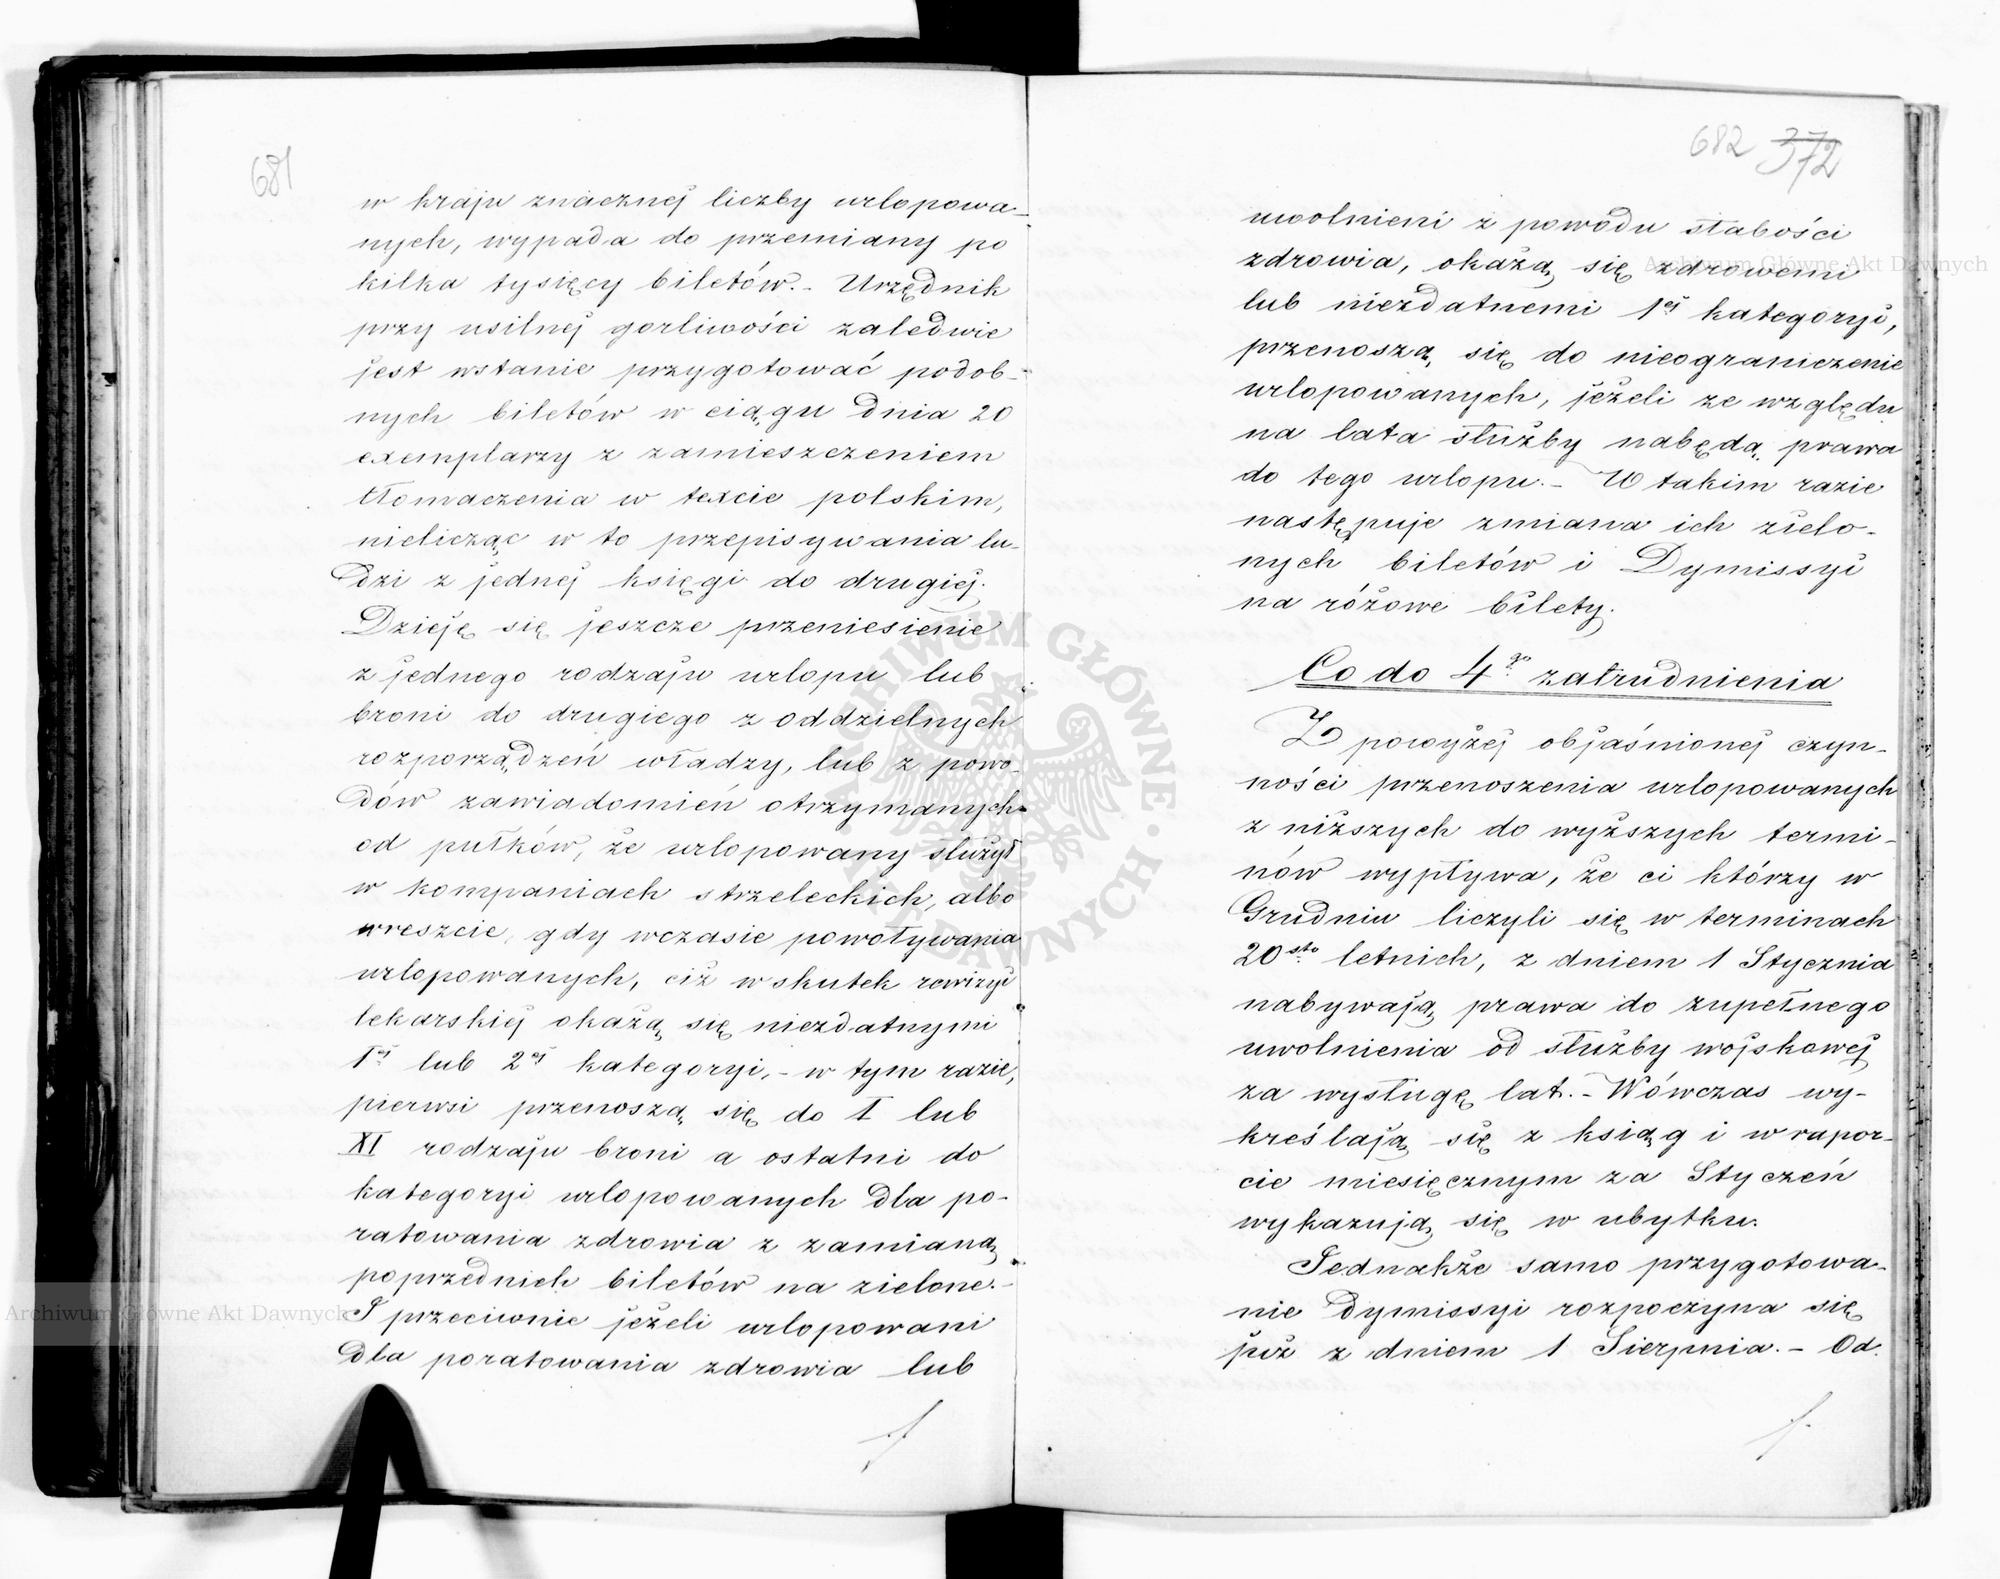 681
w kraju znacznej liczby urlopowa-
nych, wypada do przemiany po
kilka tysięcy biletów.- Urzędnik
przy usilnej gorliwości zaledwie
jest wstanie przygotować podob-
nych biletów w ciągu dnia 20
exemplarzy z zamieszczeniem
tłomaczenia w texcie polskim,
nielicząc w to przepisywania lu-
dzi z jednej księgi do drugiej.
Dzieje się jeszcze przeniesienie
z jednego rodzaju urlopu lub
broni do drugiego z oddzielnych
rozporządzeń władzy, lub z powo-
dów zawiadomień otrzymanych
od pułków, że urlopowany służył
w kompaniach strzeleckich, albo
wreszcie, gdy wczasie powoływania
urlopowanych, ciż w skutek rewizyi
lekarskiej okażą się niezdatnymi
1ej lub 2ej kategoryi,- w tym razie,
pierwsi przenoszą się do I lub
XI rodzaju broni a ostatni do
kategoryi urlopowanych dla po-
ratowania zdrowia z zamianą
poprzednich biletów na zielone.-
I przeciwnie jeżeli urlopowani
dla poratowania zdrowia lub
682 372
uwolnieni z powodu słabości
zdrowia, okażą się zdrowemi
lub niezdatnemi 1ej kategoryi,
przenoszą się do nieograniczenie
urlopowanych, jeżeli ze względu
na lata służby nabędą prawa
do tego urlopu.- W takim razie
następuje zmiana ich zielo-
nych biletów i Dymissyi
na różowe bilety.
Co do 4go zatrudnienia
Z powyżej objaśnionej czyn-
ności przenoszenia urlopowanych
z niższych do wyższych termi-
nów wypływa, że ci którzy w
Grudniu liczyli się w terminach
20sto letnich, z dniem 1 Stycznia
nabywają prawa do zupełnego
uwolnienia od służby wojskowej
za wysługę lat.- Wówczas wy-
kreślają się z ksiąg i w rapor-
cie miesięcznym za Styczeń
wykazują się w ubytku.
Jednakże samo przygotowa-
nie dymissyi rozpoczyna się
już z dniem 1 Sierpnia.- Od.
Archiwum Główne Akt Dawnych
Archiwum Główne Akt Dawnych
ARCHIWUM GŁÓWNE · AKT DAWNYCH ·